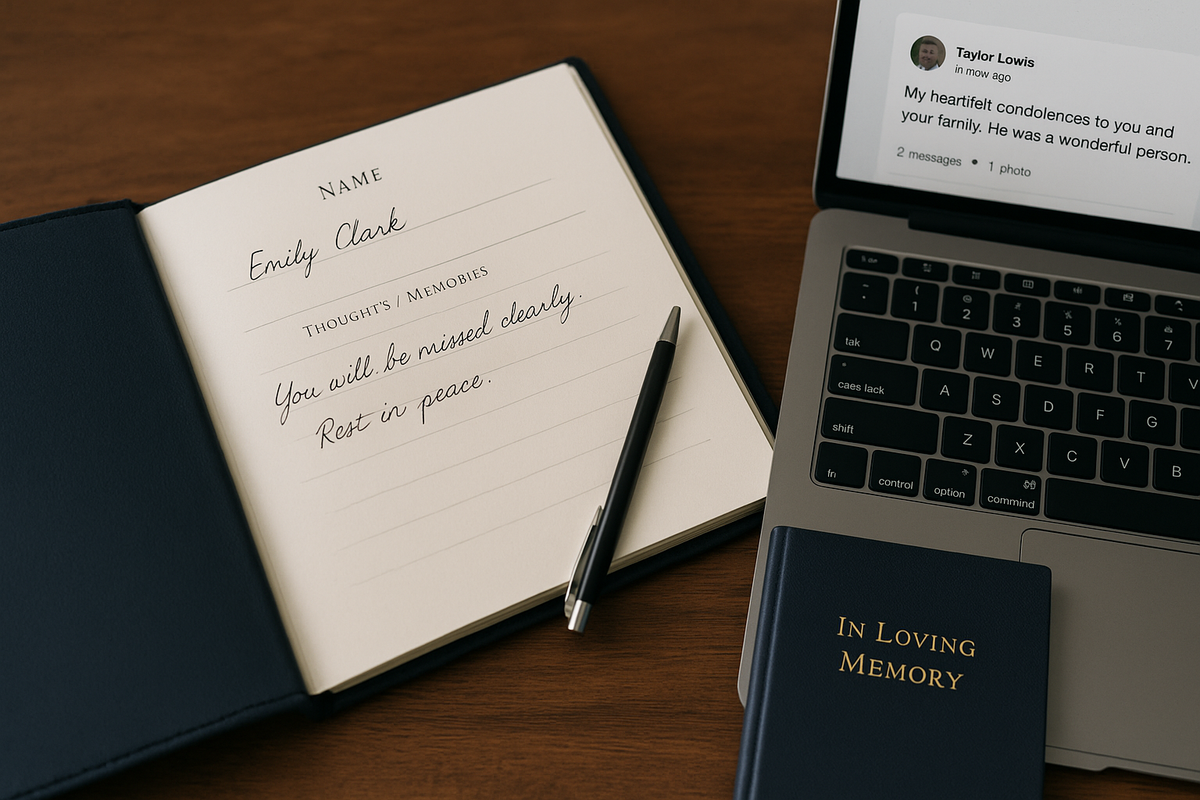 NAME
Emily Clark
THOUGHT'S / MEMORIES
You will. be missed clearly.
Rest in peace.
Taylor Lowis
in mow ago
My heartifelt condolences to you and
your farnily. He was a wonderful person.
2 messages • 1 photo
1 2 3 5 6 7
tak Q W E R T
caes lack A S D F G
shift Z X C V B
fn control option commind
IN LOVING
MEMORY